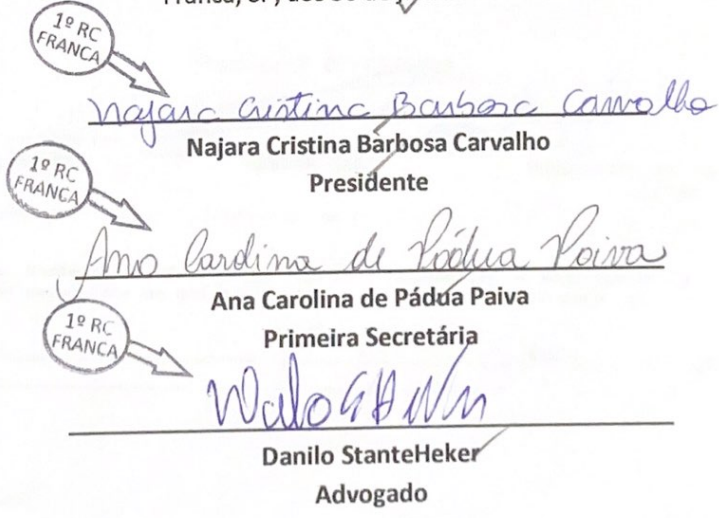 Franca, SP, aos 30 de j
1º RC
FRANCA
Najara Cristina Barbosa Carvalho
Najara Cristina Barbosa Carvalho
Presidente
1º RC
FRANCA
Ana Carolina de Pádua Paiva
Ana Carolina de Pádua Paiva
Primeira Secretária
1º RC
FRANCA
Danilo StanteHeker
Advogado